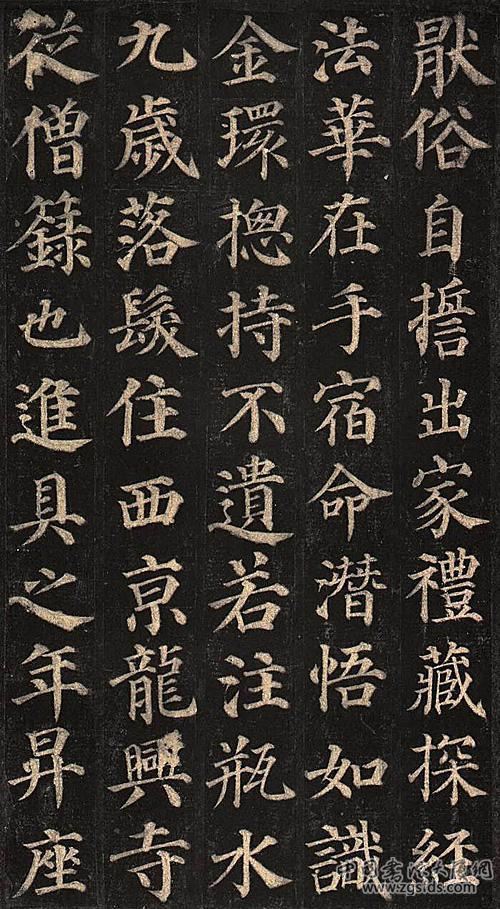 猒俗自誓出家禮藏探経
法華在手宿命潛悟如識
金環揔持不遺若注瓶水
九歲落髮住西京龍興寺
從僧籙也進具之年昇座
中国书法大展网
www.zgsids.com